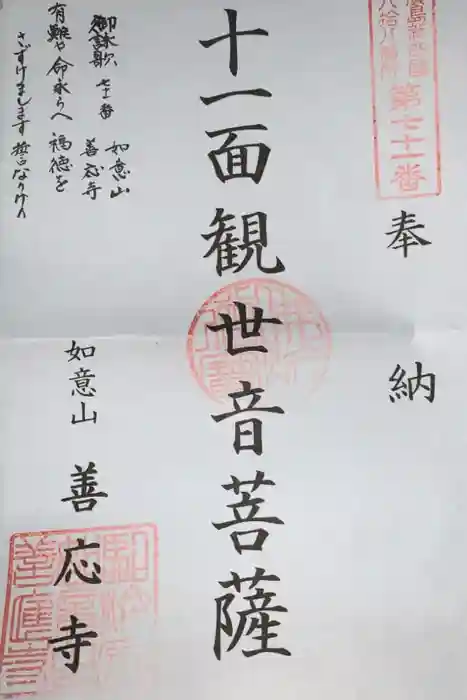 第七十一番
奉納
十一面観世音菩薩
如意山 善応寺
御詠歌 七十一番 如意山 善応寺
有難や 命永らへ 福徳を
さずけまします 誓なりけり